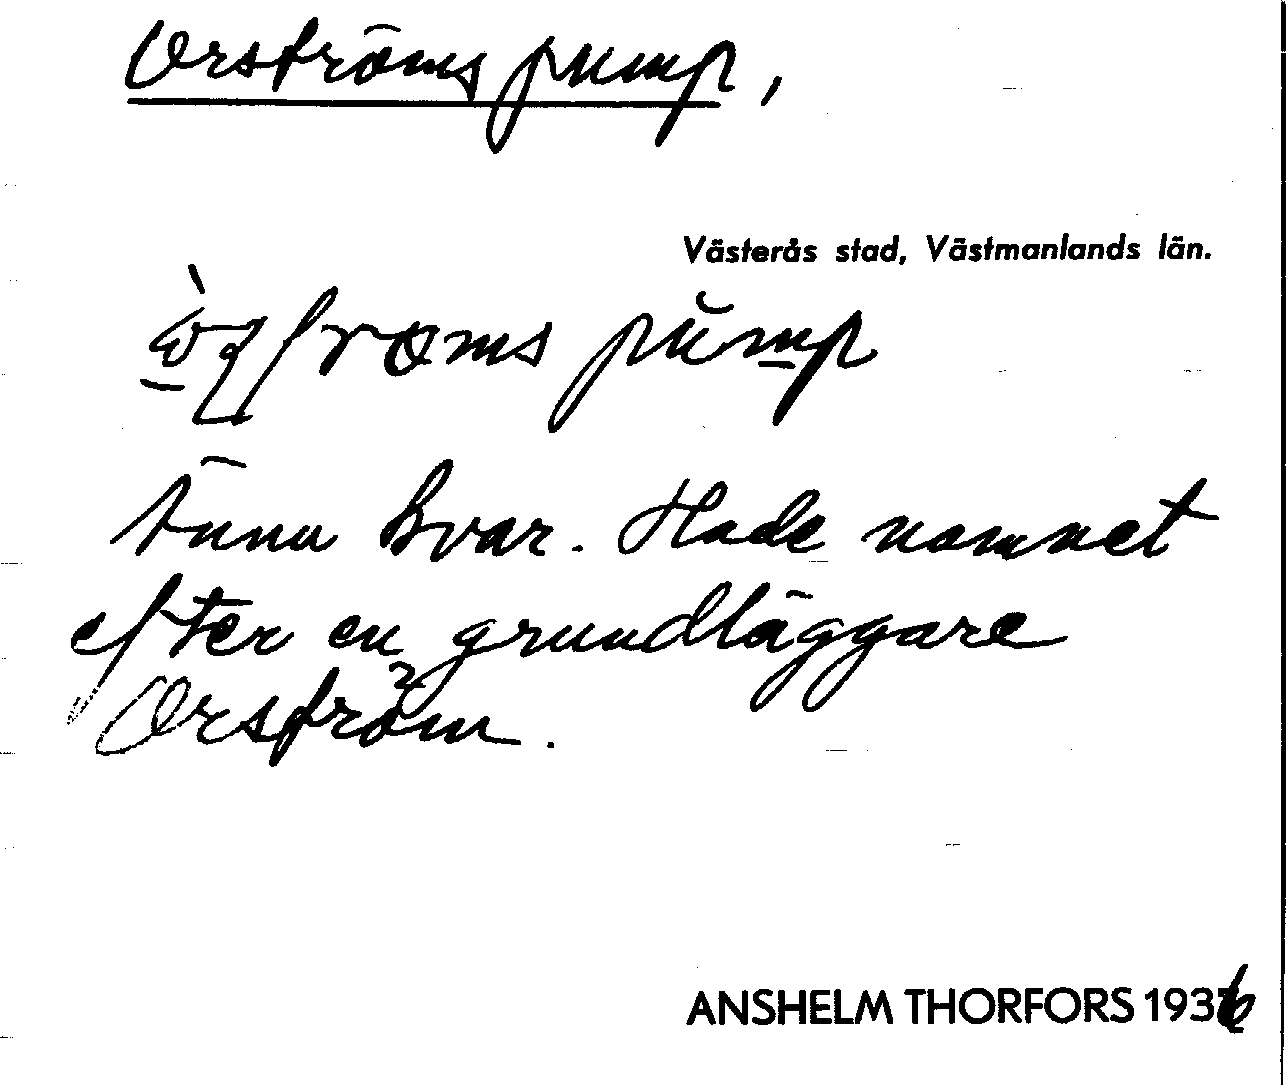 Orströms pump,
Västerås stad, Västmanlands län.
pump
Ännu kvar. Hade namnet
efter en grundläggare
Orström.
ANSHELM THORFORS 1936